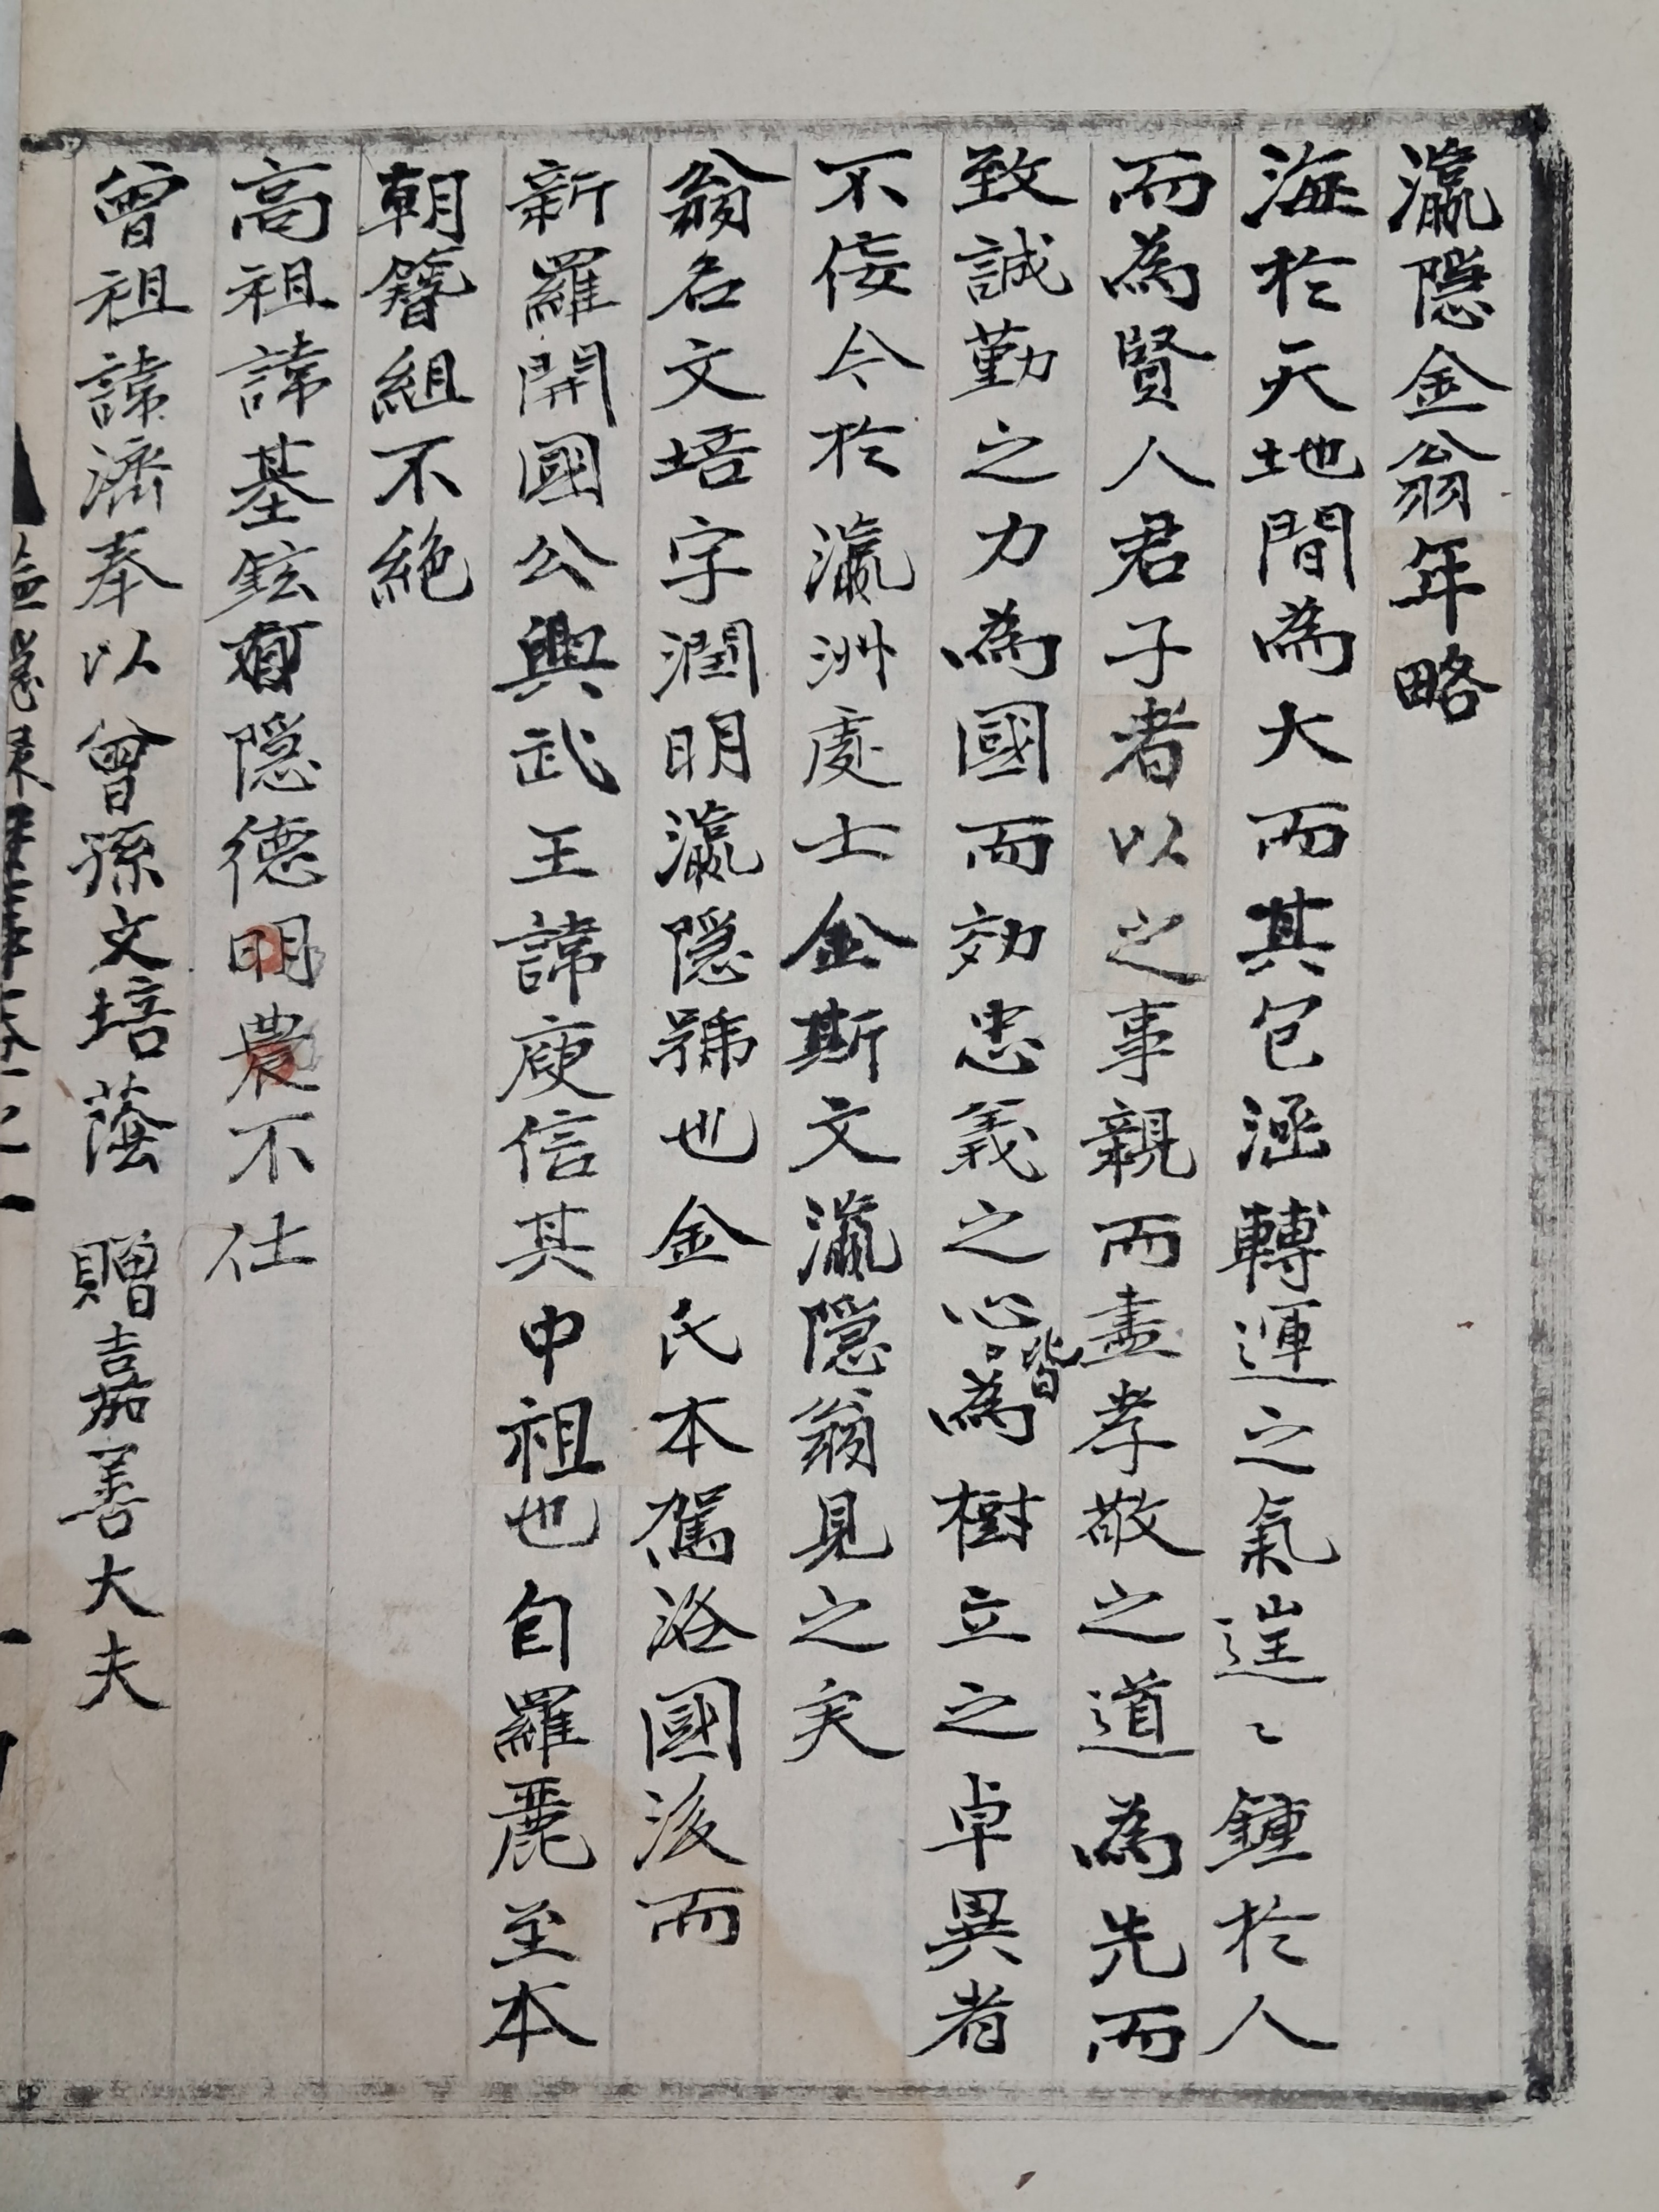 瀛隱金翁年略
海於天地間為大而其包涵轉運之氣𨓏〻鍾於人
而為賢人君子者以之事親而盡孝敬之道為先而
致誠勤之力為國而効忠義之心皆為樹立之卓異者
不侫今於瀛洲處士金斯文瀛隱翁見之矣
翁名文培字潤明瀛隱號也金氏本駕洛國後而
新羅開國公興武王諱庾信其中祖也自羅麗至本
朝簪組不絶
高祖諱基鉉有隱德明農不仕
曾祖諱濟奉以曾孫文培蔭 贈嘉善大夫